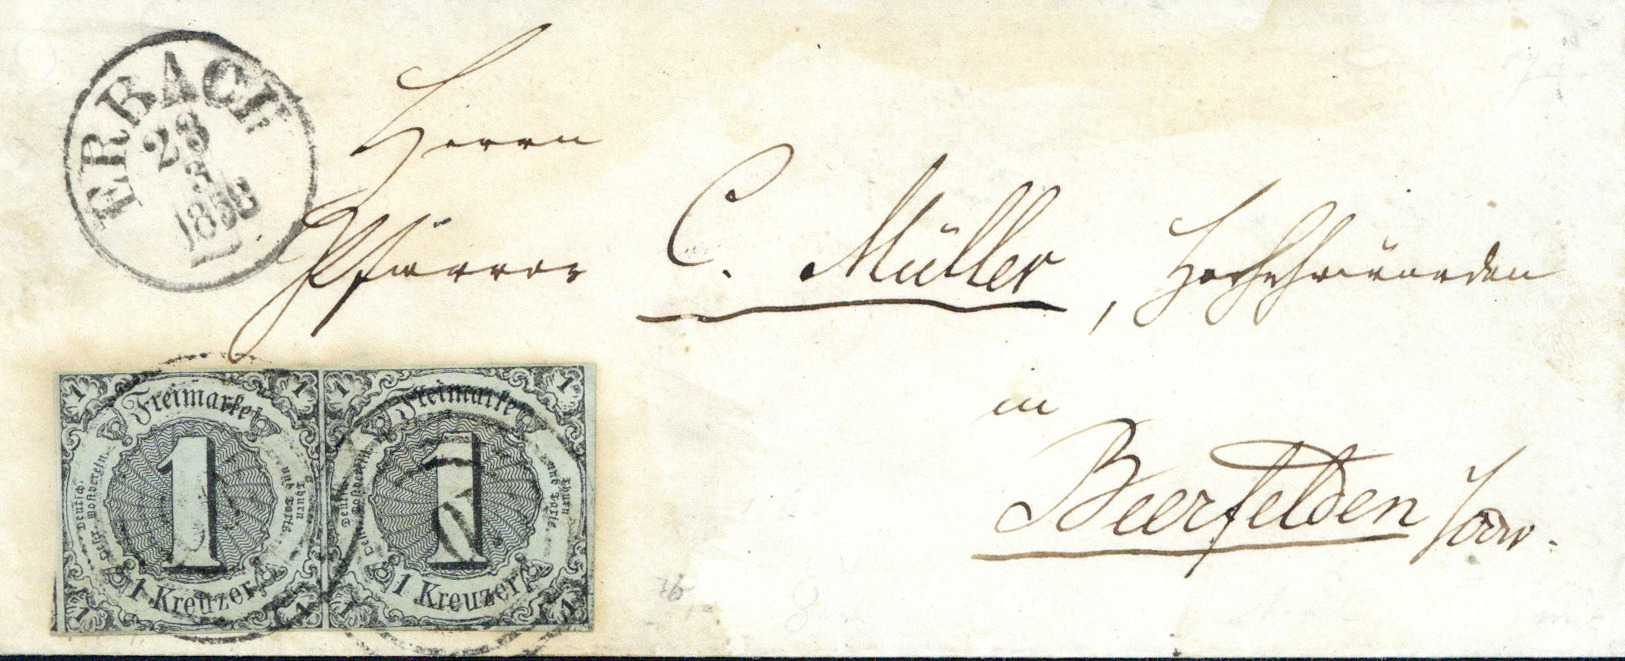 ERBACH
23
3
1858
Herrn
Pfarrer C. Müller, Hochehrwürden
in
Beerfelden
1 1
Freimarke
Deutsch. Östr. Postverein.
Thurn und Taxis.
1
1 Kreuzer
1 1
1 1
Freimarke
Deutsch. Östr. Postverein.
Thurn und Taxis.
1
1 Kreuzer
1 1